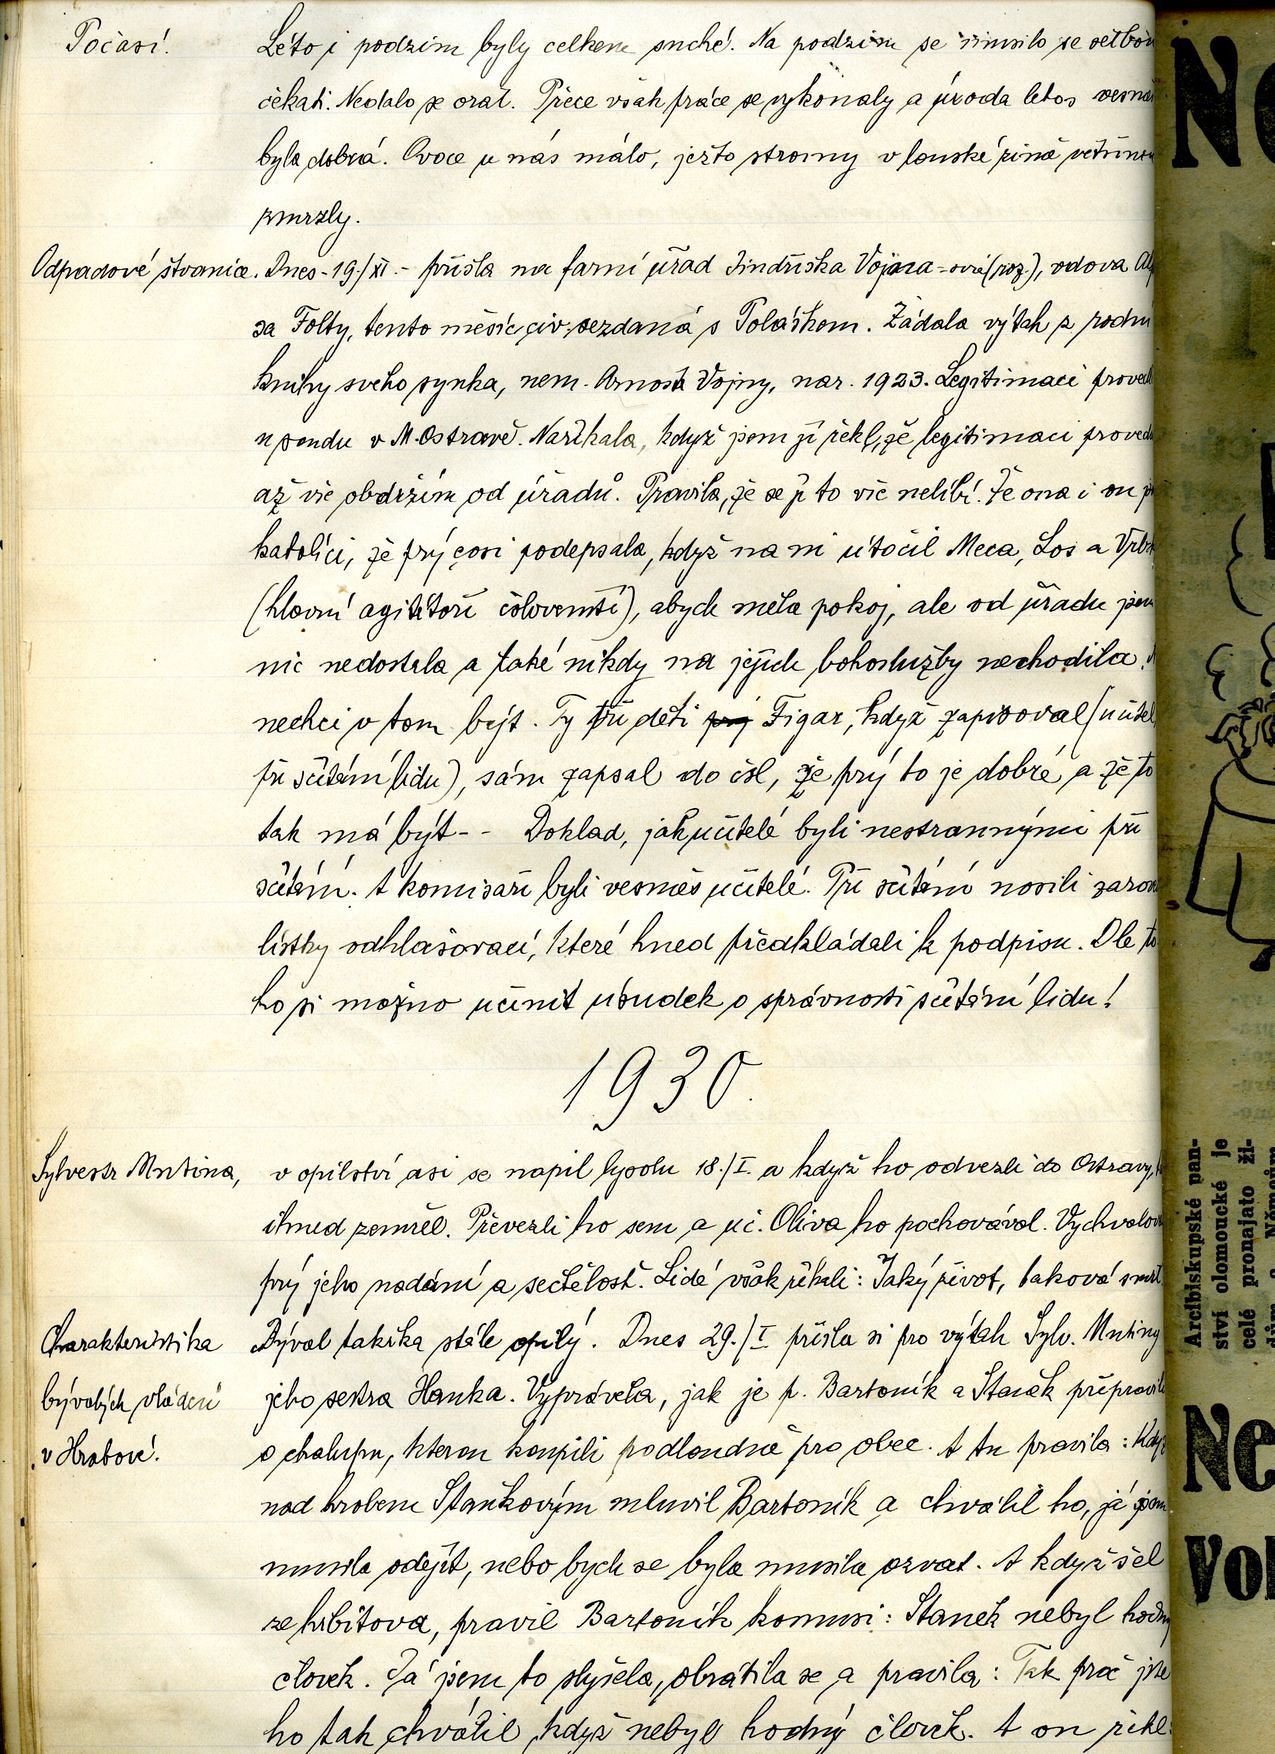 Počasí.
Léto i podzim byly celkem suché. Na podzim se musilo se setbou
čekati. Nedalo se orat. Přece však práce se vykonaly a úroda letos
byla dobrá. Ovoce u nás málo, ježto stromy v louské zimě většinou
zmrzly.
Odpadové štvanice. Dnes - 19/XI. - přišla na farní úřad Jindřiška Vojna-ová (roz.), vdova
sa Folty, tento měsíc civ. sezdaná s Poláškom. Žádala výtah z rodn
knihy svého synka, nem. Arnošta Vojny, nar. 1923. Legitimaci proved
u soudu v M. Ostravě. Naříkala, když jsem jí řekl, že legitimaci proved
až vše obdržím od úřadů. Pravila, že se jí to víc nelíbí. Že ona i on
katolíci, že prý cosi podepsala, když na ni útočil Meca, Los a
(hlavní agitátoři čslovenští), abych měla pokoj, ale od úřadu jsem
nic nedostala a také nikdy na jejich bohoslužby nechodila.
nechci v tom být. Ty tři děti prý Figar, když zapisoval (učitel
při sčítání lidu), sám zapsal do čsl, že prý to je dobré a že to
tak má být - - Doklad, jak učitelé byli nestrannými při
sčítání. A komisaři byli vesměs učitelé. Při sčítání nosili zarov
lístky odhlašovací, které hned předkládali k podpisu. Dle to
ho si možno učinit úsudek o správnosti sčítání lidu!
1930.
Sylvestr Mutina,
v opilství asi se napil lysolu 18./I. a když ho odvezli do Ostravy,
ihned zemřel. Převezli ho sem a uč. Oliva ho pochovával. Vychvaloval
prý jeho nadání a sečtělost. Lidé však řekli: Jaký život, taková smrt
Charakteristika
bývalých vládců
v Hrabové.
Býval takřka stále opilý. Dnes 29./I přišla si pro výtah Sylv. Mutiny
jeho sestra Hanka. Vyprávěla, jak je p. Bartoník a Staněk připravili
o chalupu, kterou koupili podloudně pro obec. A tu pravila: Když
nad hrobem Staňkovým mluvil Bartoník a chválil ho, já jsem
musila odejít, nebo bych se byla musila ozvat. A když šel
ze hřbitova, pravil Bartoník komusi: Staněk nebyl hodný
člověk. Já jsem to slyšela, obrátila se a pravila: Tak proč jste
ho tak chválil, když nebyl hodný člověk. A on řekl:
No
Arcibiskupské pan-
ství olomoucké je
celé pronajato ži-
dům a Němcům
Ne
Vol